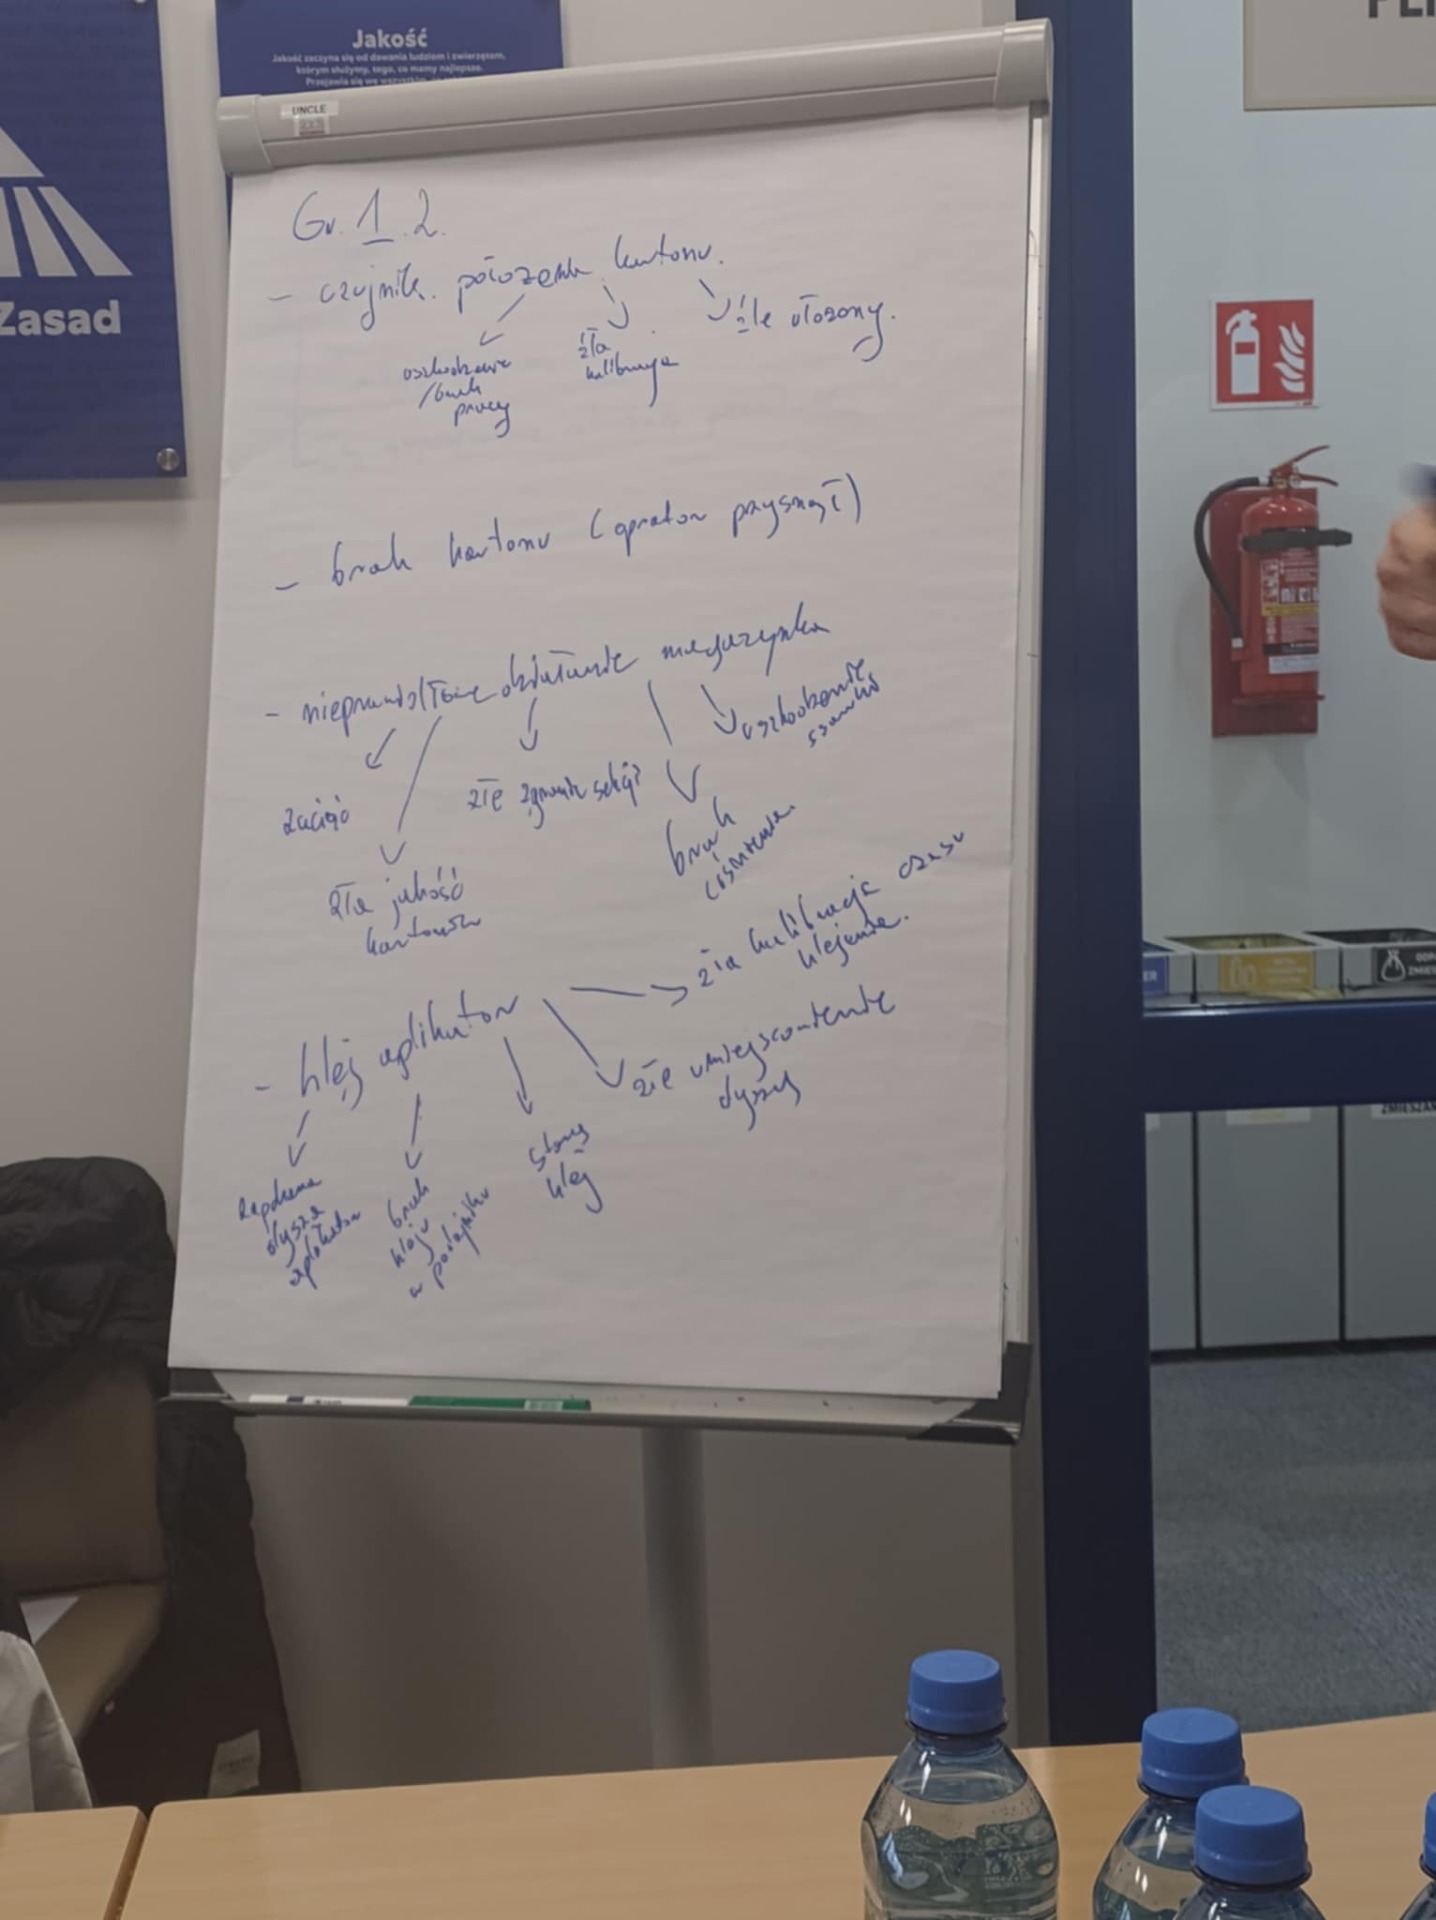 Jakość
Jakość zaczyna się od dawania ludziom i zwierzętom,
którym służymy, tego, co mamy najlepsze.
Przejawia się we wszystkim,
UNCLE
Zasad
Gr. 1.2.
- czujnik położenia kartonu.
uszkodzenie
/brak
pracy
zła
kalibracja
źle ułożony.
- brak kartonu (oprator przysnął)
- nieprawidłowe działanie magazynka
zacięć
zła jakość
kartonów
złe sekcji
brak
ciśnienia.
uszkodzenie
- klej aplikator
dysza
aplikator
brak
kleju
w podajniku
stary
klej
złe umiejscowienie
dyszy
zła kalibracja czasu
klejenia.